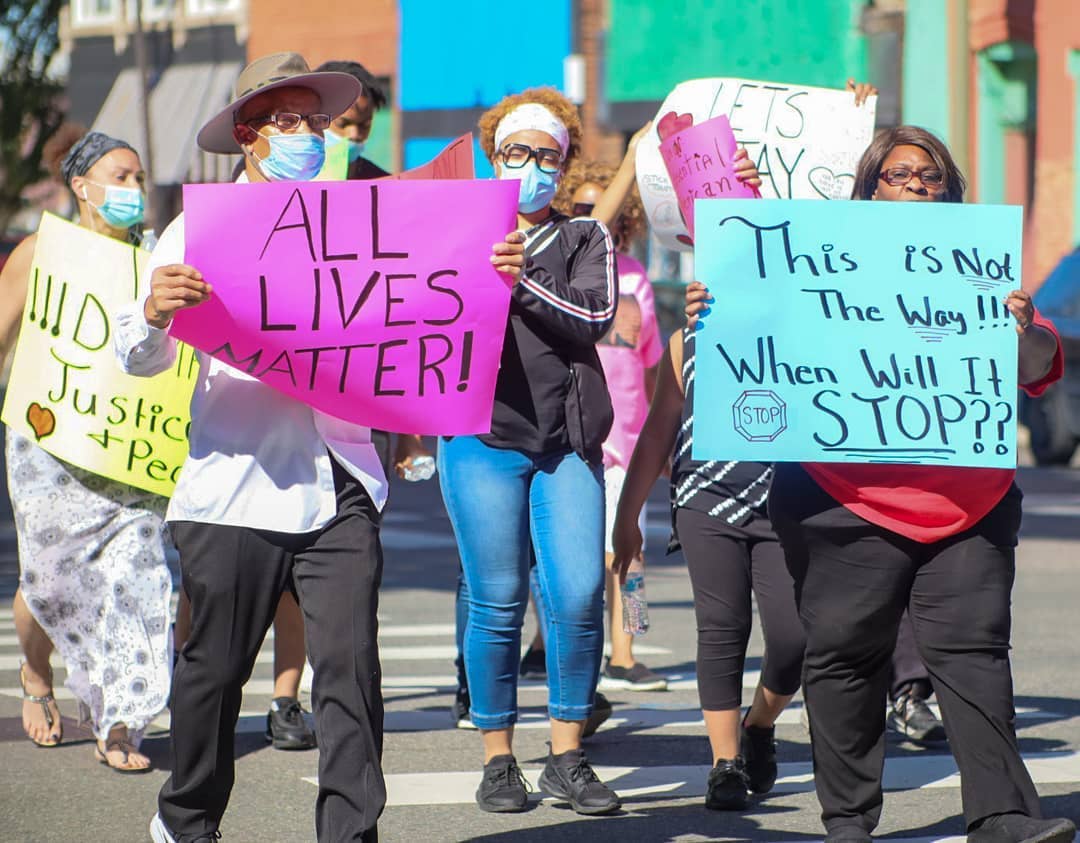 !!!D
Justic
+ Pea
ALL
LIVES
MATTER!
LETS
essential
This is Not
The Way!!!
When Will It
STOP
STOP??